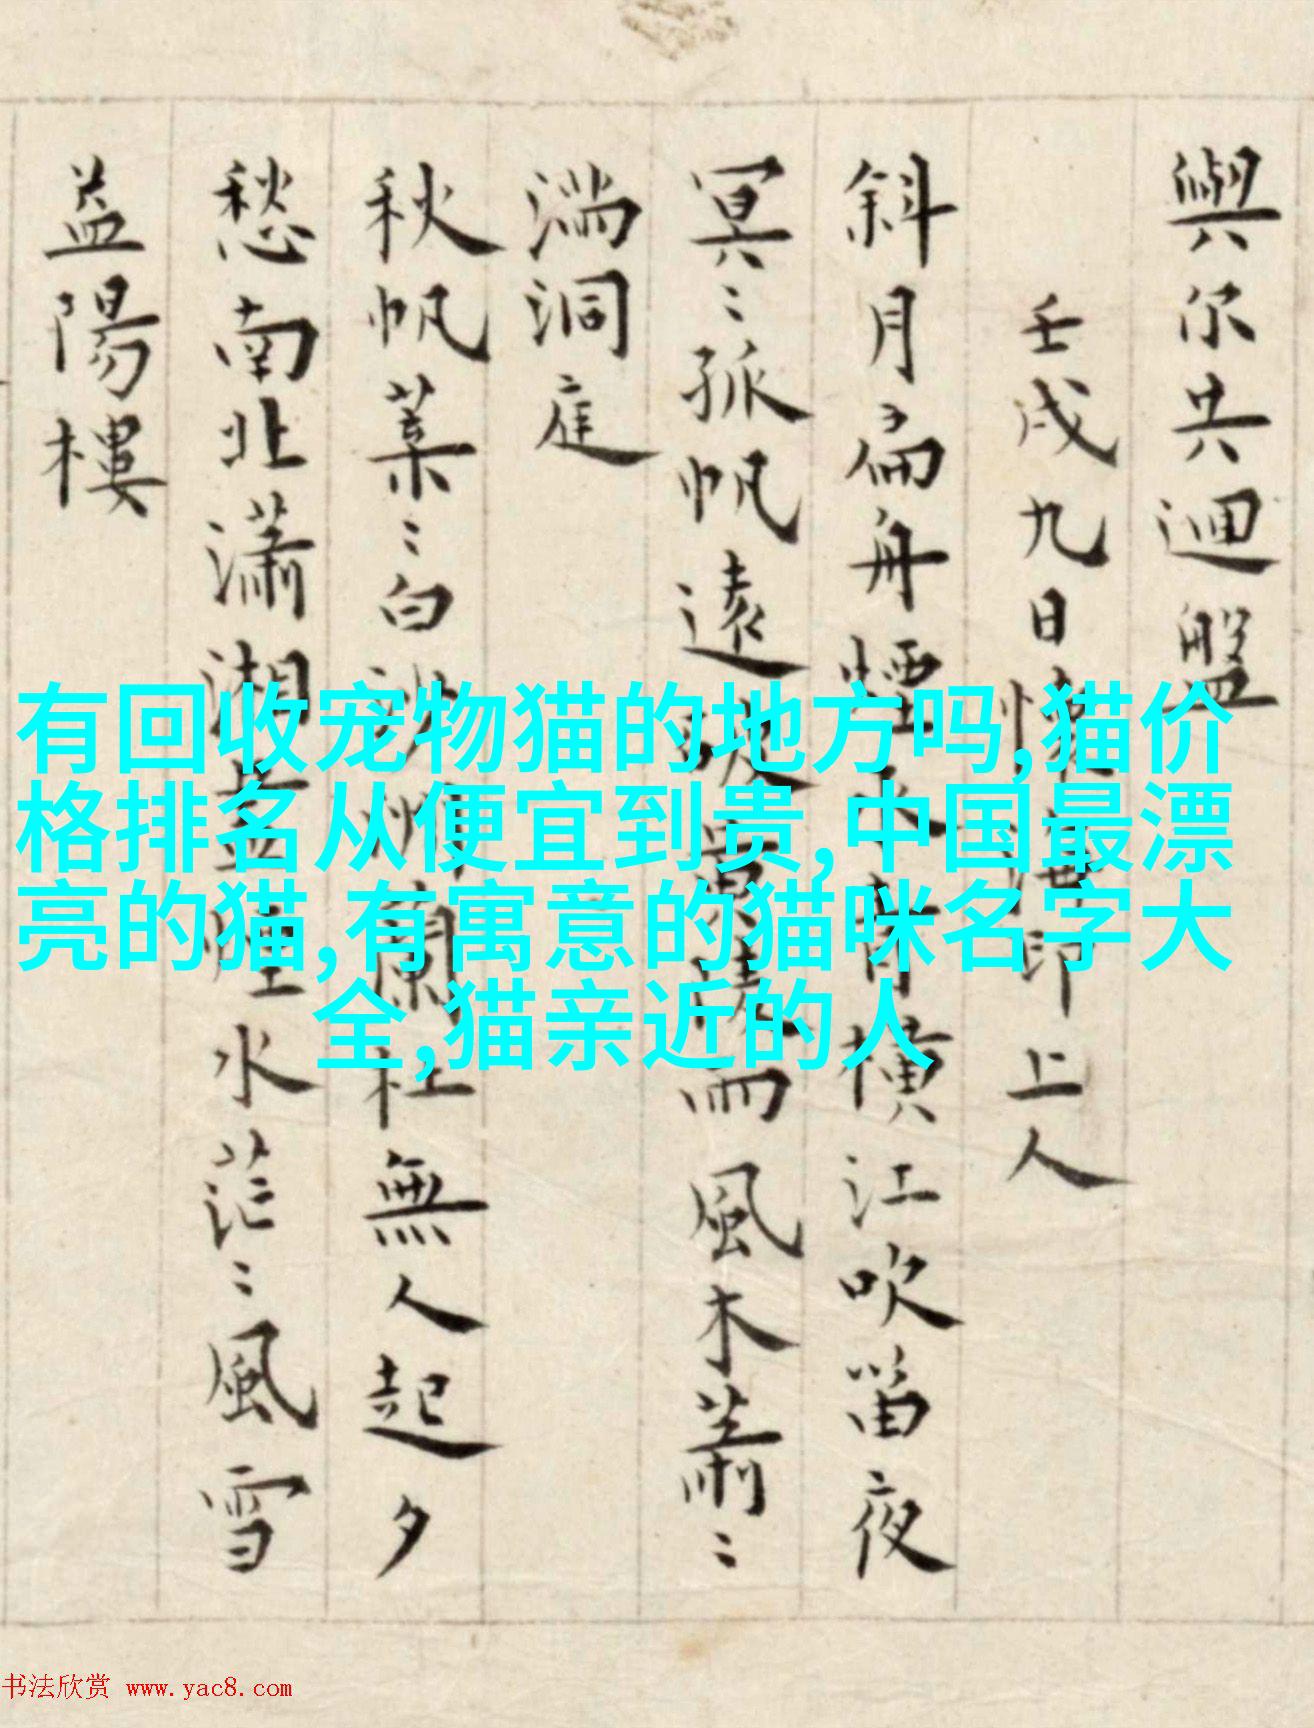 與尔共迴盤
壬戌九日懷 印上人
斜月扁舟煙水 橫江吹笛夜
冥〻孤帆遠 風木蕭〻
湍洞庭
秋帆葉〻白沙 蘭杜無人起夕
愁南北瀟湘 煙水茫〻風雪
益陽樓
有回收宠物猫的地方吗,猫价
格排名从便宜到贵,中国最漂
亮的猫,有寓意的猫咪名字大
全,猫亲近的人
书法欣赏 www.yac8.com